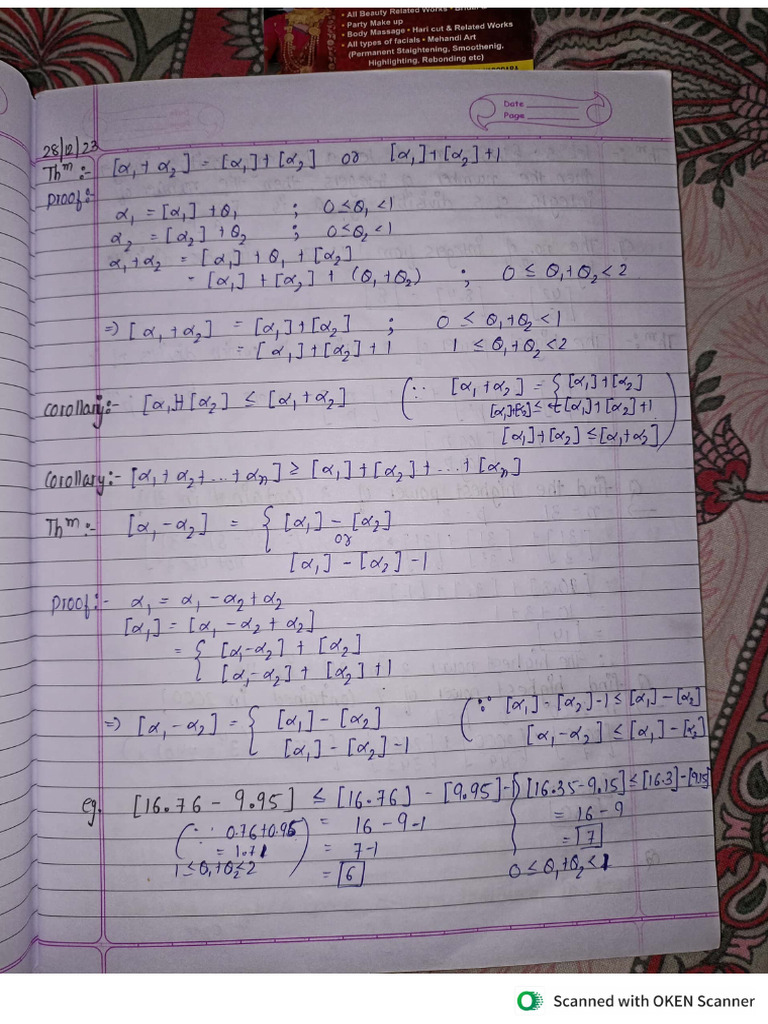 • All Beauty Related Works •
• Party Make up
• Body Massage • Hari cut & Related Works
• All types of facials • Mehandi Art
(Permanent Staightening, Smoothenig,
Highlighting. Rebonding etc)
Date
Page
28/12/23
Thm:- [α₁ + α₂] = [α₁] + [α₂] or [α₁] + [α₂] + 1
Proof:-
α₁ = [α₁] + θ₁ ; 0 ≤ θ₁ < 1
α₂ = [α₂] + θ₂ ; 0 ≤ θ₂ < 1
α₁ + α₂ = [α₁] + θ₁ + [α₂]
= [α₁] + [α₂] + (θ₁ + θ₂) ; 0 ≤ θ₁ + θ₂ < 2
⇒ [α₁ + α₂] = [α₁] + [α₂] ; 0 ≤ θ₁ + θ₂ < 1
= [α₁] + [α₂] + 1 1 ≤ θ₁ + θ₂ < 2
Corollary:- [α₁] + [α₂] ≤ [α₁ + α₂] (∵ [α₁ + α₂] = { [α₁] + [α₂]
[α₁] + [α₂] + 1
[α₁] + [α₂] ≤ [α₁ + α₂] )
Corollary:- [α₁ + α₂ + ... + αₙ] ≥ [α₁] + [α₂] + ... + [αₙ]
Thm:- [α₁ - α₂] = { [α₁] - [α₂]
or
[α₁] - [α₂] - 1
Proof:- α₁ = α₁ - α₂ + α₂
[α₁] = [α₁ - α₂ + α₂]
= { [α₁ - α₂] + [α₂]
[α₁ - α₂] + [α₂] + 1
⇒ [α₁ - α₂] = { [α₁] - [α₂] (∵ [α₁] - [α₂] - 1 ≤ [α₁] - [α₂]
[α₁] - [α₂] - 1 [α₁ - α₂] ≤ [α₁] - [α₂]
eg. [16.76 - 9.95] ≤ [16.76] - [9.95] - 1 { [16.35 - 9.15] ≤ [16.3] - [9.15]
(∵ 0.76 + 0.95 = 16 - 9 - 1 = 16 - 9
= 1.71) = 7 - 1 = 7
1 ≤ θ₁ + θ₂ ≤ 2 = 6 0 ≤ θ₁ + θ₂ < 1
Scanned with OKEN Scanner